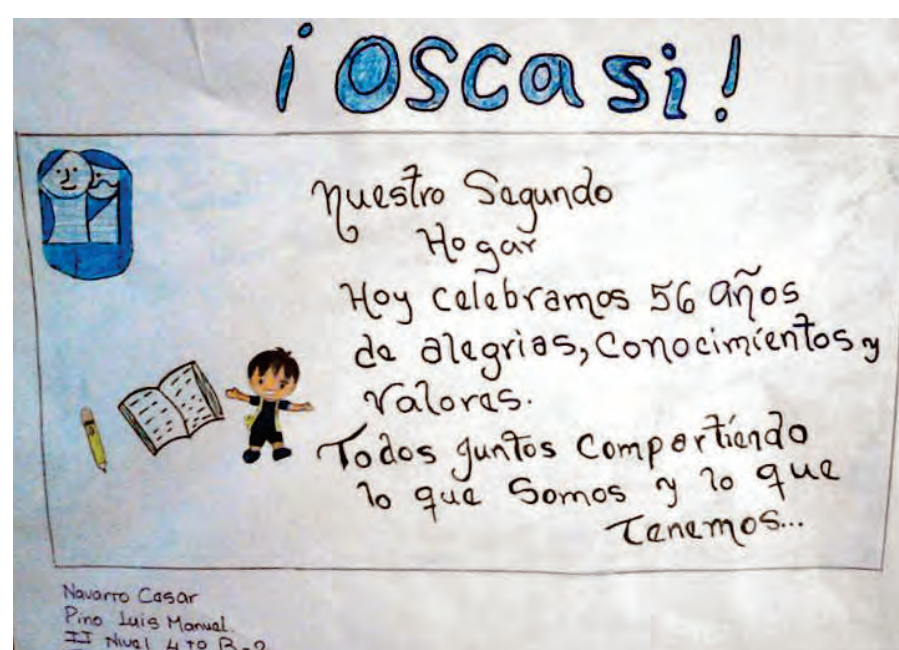 ¡OSCasi!
Nuestro Segundo
Hogar
Hoy celebramos 56 años
de alegrias, Conocimientos y
Valores.
Todos juntos Compartiendo
lo que Somos y lo que
Tenemos...
Navarro Cesar
Pino Luis Manuel.
II Nivel 4to B-2